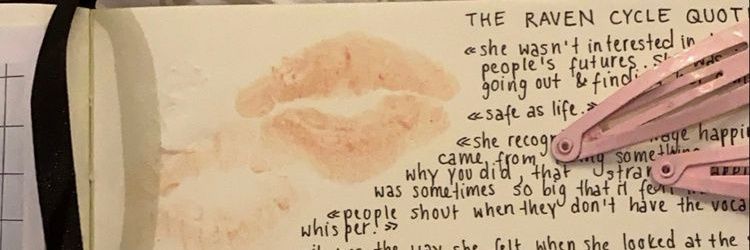 THE RAVEN CYCLE QUOT
«she wasn't interested in
people's futures. She was
going out & findi
«safe as life.»
«she recog
came from
why you did, that
was sometimes so big that it felt
«people shout when they don't have the voca
whisper!»
the way she felt when she looked at the